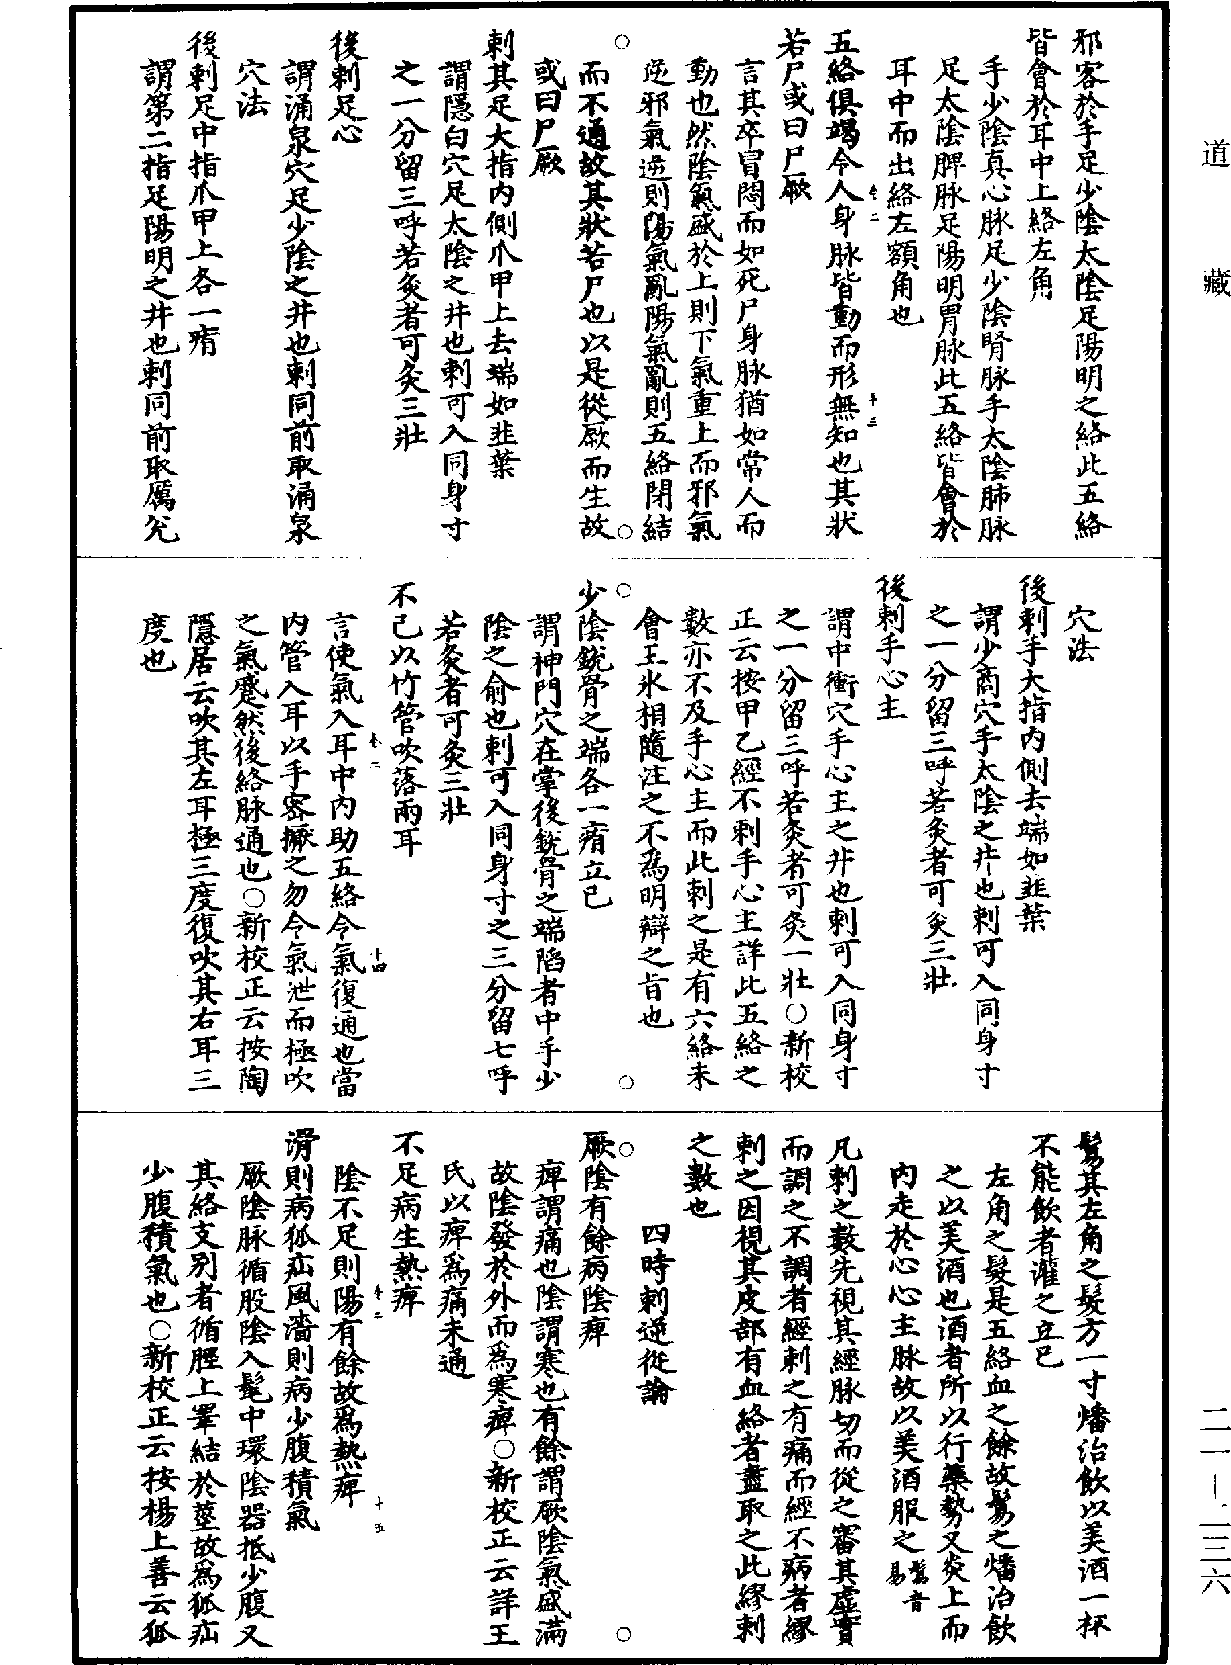 道藏
邪客於手足少陰太陰足陽明之絡此五絡
皆會於耳中上絡左角
手少陰真心脉足少陰腎脉手太陰肺脉
足太陰脾脉足陽明胃脉此五絡皆會於
耳中而出絡左額角也
五絡俱竭令人身脉皆動而形無知也其狀
若尸或曰尸厥
言其卒冒悶而如死尸身脉猶如常人而
動也然陰氣盛於上則下氣重上而邪氣
逆邪氣逆則陽氣亂陽氣亂則五絡閉結
而不通故其狀若尸也以是從厥而生故
或曰尸厥
刺其足大指内側爪甲上去端如韭葉
謂隱白穴足太陰之井也刺可入同身寸
之一分留三呼若灸者可灸三壯
後刺足心
謂涌泉穴足少陰之井也刺同前取涌泉
穴法
後刺足中指爪甲上各一痏
謂第二指足陽明之井也刺同前取厲兊
穴法
後刺手大指内側去端如韭葉
謂少商穴手太陰之井也刺可入同身寸
之一分留三呼若灸者可灸三壯
後刺手心主
謂中衝穴手心主之井也刺可入同身寸
之一分留三呼若灸者可灸一壯○新校
正云按甲乙經不刺手心主詳此五絡之
數亦不及手心主而此刺之是有六絡未
會王氷相隨注之不爲明辯之旨也
少陰銳骨之端各一痏立已
謂神門穴在掌後銳骨之端陷者中手少
陰之俞也刺可入同身寸之三分留七呼
若灸者可灸三壯
不已以竹管吹落兩耳
言使氣入耳中内助五絡令氣復通也當
内管入耳以手密擫之勿令氣泄而極吹
之氣蹙然後絡脉通也○新校正云按陶
隱居云吹其左耳極三度復吹其右耳三
度也
鬄其左角之髮方一寸燔治飲以美酒一杯
不能飲者灌之立已
左角之髮是五絡血之餘故鬄之燔治飲
之以美酒也酒者所以行藥勢又炎上而
内走於心心主脉故以美酒服之鬄音易
凡刺之數先視其經脉切而從之審其虛實
而調之不調者經刺之有痛而經不病者繆
刺之因視其皮部有血絡者盡取之此繆刺
之數也
四時刺逆從論
厥陰有餘病陰痺
痺謂痛也陰謂寒也有餘謂厥陰氣盛滿
故陰發於外而爲寒痺○新校正云詳王
氏以痺爲痛未通
不足病生熱痺
陰不足則陽有餘故爲熱痺
滑則病狐疝風濇則病少腹積氣
厥陰脉循股陰入髦中環陰器抵少腹又
其絡支别者循脛上睾結於莖故爲狐疝
少腹積氣也○新校正云按楊上善云狐
卷二
十三
卷二
十四
卷二
十五
二一—二三六